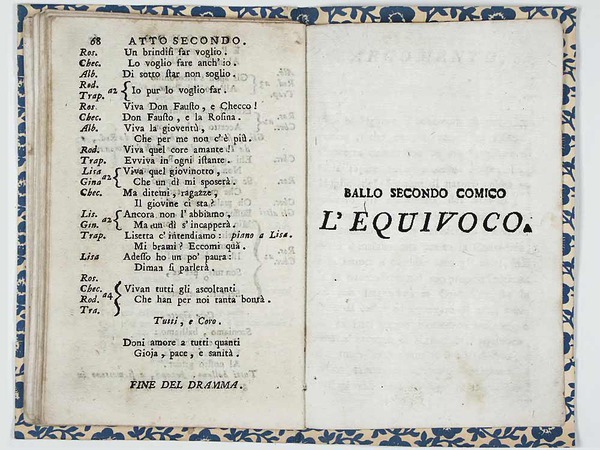 68 ATTO SECONDO.
Ros. Un brindiſi far voglio.
Chec. Lo voglio fare anch'io.
Alb. Di ſotto ſtar non ſoglio.
Rod.
Trap. a2 { Io pur lo voglio far.
Ros. Viva Don Fauſto, e Checco!
Chec. Don Fauſto, e la Roſina.
Alb. Viva la gioventù,
Che per me non c'è più.
Rod. Viva quel core amante!
Trap. Evviva in ogni iſtante.
Lisa
Gina a2 { Viva quel giovinotto,
Che un dì mi ſpoſerà.
Chec. Ma ditemi, ragazze,
Il giovine ci sta?
Lis.
Gin. a2 { Ancora non l'abbiamo,
Ma un dì s'incapperà.
Trap. Lisetta c'intendiamo: piano a Lisa.
Mi brami? Eccomi quà.
Lisa Adeſſo ho un po' paura:
Diman ſi parlerà.
Ros.
Chec.
Rod. a4
Tra. { Vivan tutti gli aſcoltanti
Che han per noi tanta bontà.
Tutti, e Coro.
Doni amore a tutti quanti
Gioja, pace, e sanità.
FINE DEL DRAMMA.
BALLO SECONDO COMICO
L'EQUIVOCO.